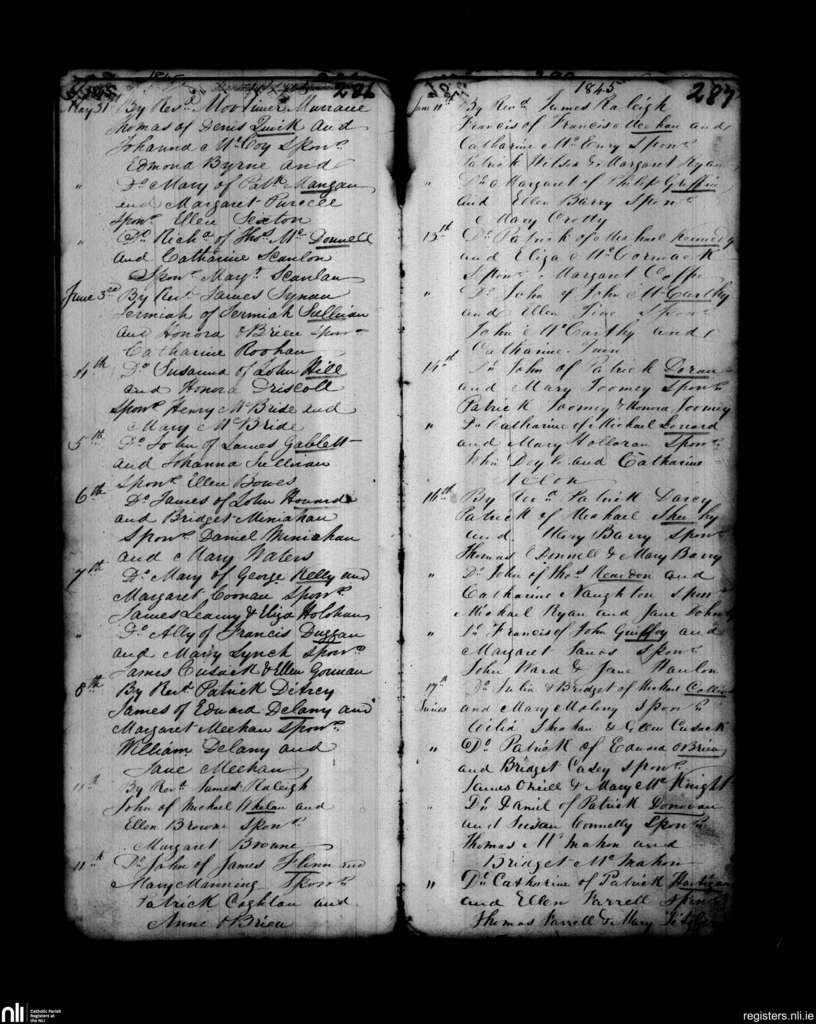 1845
286
May 31st By Revd. Mortimer
Thomas of Denis Quirk and
Johanna McCoy Sponrs.
Edmond Byrne and
" Do. Mary of Patk. Mangan
and Margaret Purcell
Sponr. Ellen Sexton
" Do. Richd. of Thos. McDonnell
and Catharine Scanlon
Sponr. Maryt. Scanlan
June 3rd By Revd. James Synan
Jermiah of Jermiah Sullivan
and Honora OBrien Sponr.
Catharine Roohan
4th Do. Susanna of John Hill
and Honora Driscoll
Sponrs. Henry McBride and
Mary McBride
5th Do. John of James Gablett
and Johanna Sullivan
Sponr. Ellen Bowes
6th Do. James of John Howard
and Bridget Miniahan
Sponrs. Daniel Miniahan
and Mary Waters
7th Do. Mary of George Kelly and
Margaret Coonan Sponrs.
James Leamy & Eliza Holohan
" Do. Ally of Francis Duggan
and Mary Lynch Sponrs.
James Cusack & Ellen Gorman
8th By Revd. Patrick
James of Edward Delany and
Margaret Meehan Sponrs.
William Delany and
Jane Meehan
11th By Revd. James Raleigh
John of Michael Whelan and
Ellen Browne Sponr.
Margaret Browne
11th Do. John of James Flinn and
Mary Manning Sponrs.
Patrick Coghlan and
Anne OBrien
1845
287
June 11th By Revd. James Raleigh
Francis of Francis Meehan and
Catharine McEnry Sponrs.
Patrick Wilson & Margaret Ryan
" Do. Margaret of Philip Griffin
and Ellen Barry Sponr.
Mary Crotty
13th Do. Patrick of Michael Kennedy
and Eliza McCormack
Sponr. Margaret
" Do. John of John McCarthy
and Ellen Sponrs.
John McCarthy and
Catharine
14th Do. John of Patrick Doran
and Mary Toomey Sponrs.
Patrick Toomey & Honora Toomey
" Do. Catharine of Michael
and Mary Holloran Sponrs.
John Doyle and Catharine
16th By Revd. Patrick Darcy
Patrick of Michael
and Mary Barry Sponrs.
Thomas ODonnell & Mary Barry
" Do. John of Thos. Reardon and
Catharine Naughton Sponrs.
Michael Ryan and Jane
" Do. Francis of John Guiffoy and
Margaret Sponrs.
John Ward & Jane Hanlon
17th Do. Julia & Bridget of Michael Collins
Twins and Mary Molony Sponrs.
Sheehan & Ellen Cusack
" Do. Patrick of Edward OBrien
and Bridget Casey Sponrs.
James ONeill & Mary McKnight
" Do. Daniel of Patrick Donovan
and Susan Connelly Sponrs.
Thomas McMahon and
Bridget McMahon
" Do. Catharine of Patrick Hartigan
and Ellen Farrell Sponrs.
Thomas Farrell & Mary
nli
Catholic Parish
Registers at
the NLI
registers.nli.ie